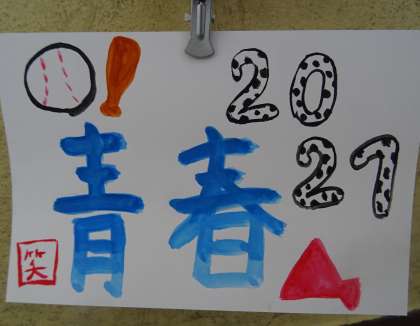 20
21
青春
笑